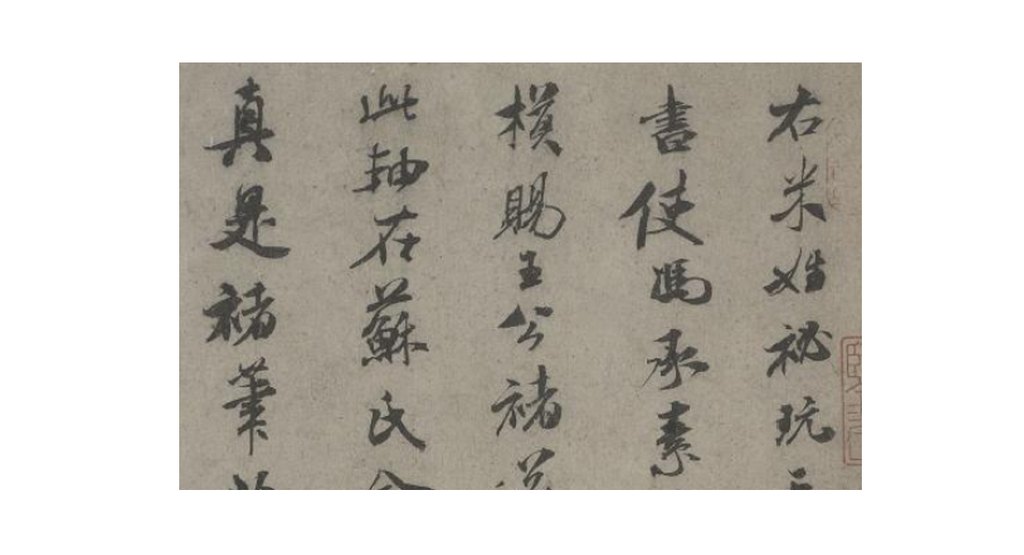 右米姓祕玩天
書使馮承素
模賜王公褚遂
此軸在蘇氏
真是褚筆